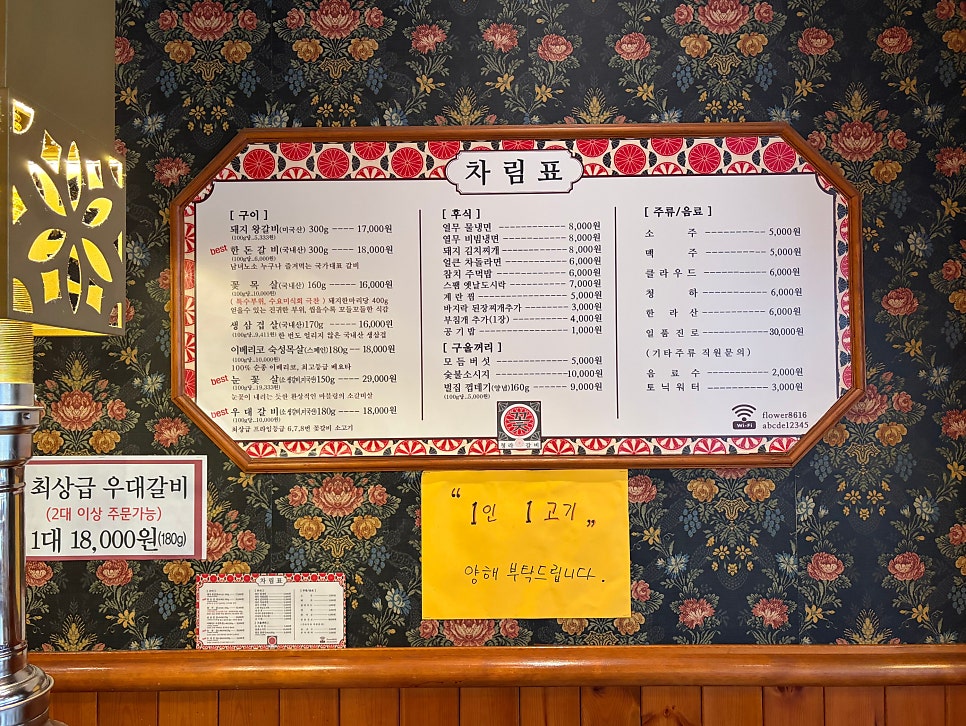 차림표
[ 구이 ]
돼지 왕갈비(미국산) 300g ---- 17,000원
(100g당..5,333원)
best 한 돈 갈 비(국내산) 300g --- 18,000원
(100g당..6,000원)
남녀노소 누구나 즐겨먹는 국가대표 갈비
꽃 목 살(국내산) 160g ------ 16,000원
(100g당..10,000원)
( 특수부위, 수요미식회 극찬 ) 돼지한마리당 400g
얻을수 있는 진귀한 부위, 씹을수록 꼬들꼬들한 식감
생 삼 겹 살(국내산)170g ----- 16,000원
(100g당..9,411원) 한 번도 얼리지 않은 국내산 생삼겹
이베리코 숙성목살(스페인)180g -- 18,000원
(100g당..10,000원)
100% 순종 이베리코, 최고등급 베요타
best 눈 꽃 살(소생갈비,미국산)150g ---- 29,000원
(100g당..19,333원)
눈꽃이 내리는 듯한 환상적인 마블링의 소갈비살
best 우 대 갈 비(소생갈비,미국산)180g --- 18,000원
(100g당..10,000원)
최상급 프라임등급 6,7,8번 꽃갈비 소고기
[ 후식 ]
열무 물냉면 ------------ 8,000원
열무 비빔냉면 ----------- 8,000원
돼지 김치찌개 ----------- 8,000원
얼큰 차돌라면 ----------- 6,000원
참치 주먹밥 ------------ 6,000원
스팸 옛날도시락 ---------- 7,000원
계 란 찜 -------------- 5,000원
바지락 된장찌개추가 ------- 3,000원
부침개 추가(1장) --------- 4,000원
공 기 밥 -------------- 1,000원
[ 구울꺼리 ]
모 듬 버 섯 ------------ 5,000원
숯불소시지 ------------10,000원
벌집 껍데기(양념)160g ------ 9,000원
(100g당..5,000원)
꽃
청라 갈비
[ 주류/음료 ]
소 주 ------------ 5,000원
맥 주 ------------ 5,000원
클 라 우 드 ---------- 6,000원
청 하 ------------ 6,000원
한 라 산 ----------- 6,000원
일 품 진 로 ----------30,000원
(기타주류 직원문의)
음 료 수 ----------- 2,000원
토 닉 워 터 ---------- 3,000원
Wi-Fi
flower8616
abcde12345
최상급 우대갈비
(2대 이상 주문가능)
1대 18,000원(180g)
“1인 1고기„
양해 부탁드립니다.
차림표